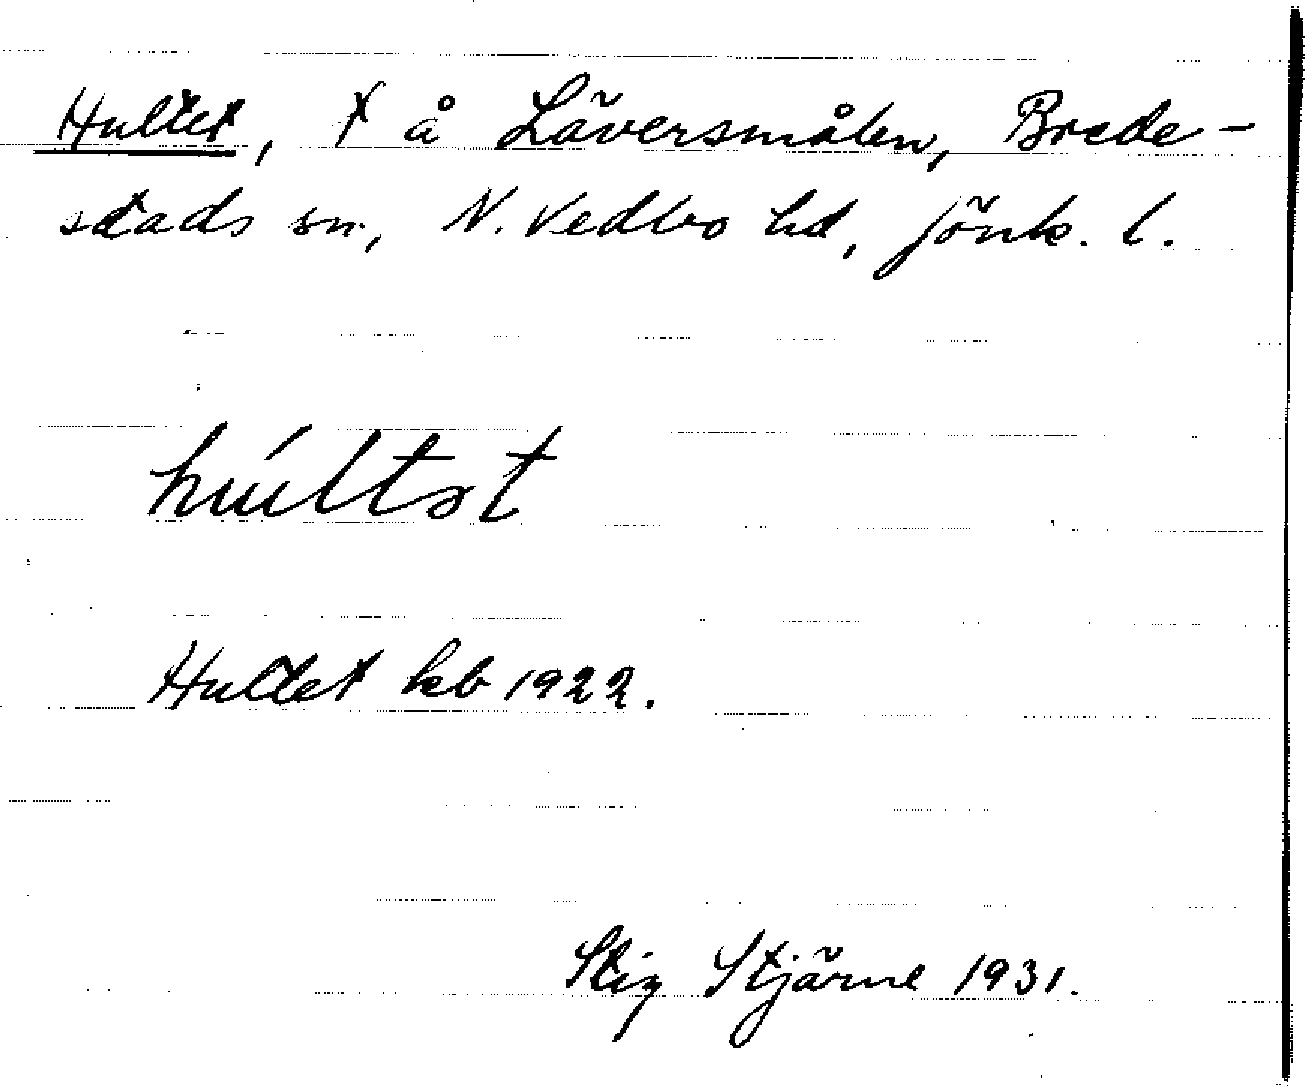 Hultet, t å Läversmålen, Brede-
stads sn, N. Vedbo hd, Jönk. l.
húltət
Hultet kb 1922.
Stig Stjärne 1931.